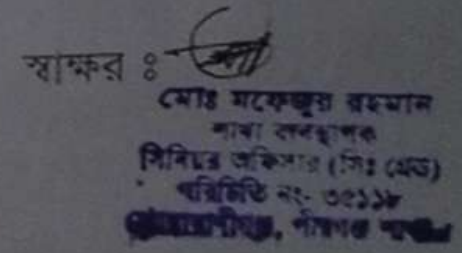 স্বাক্ষর :
মোঃ মফেজুর রহমান
শাখা ব্যবস্থাপক
সিনিয়র অফিসার (সিঃ গ্রেড)
পরিচিতি নং- ৩৫১১৮